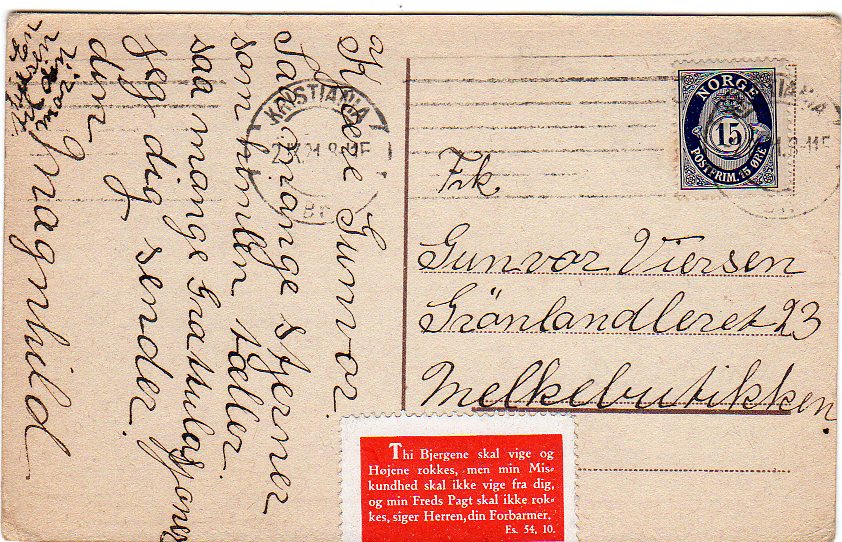 Kjere Gunvor.
Saa mange stjerner
som himlen tæller
saa mange Gratulasjoner
jeg dig sender.
din
Magnhild
Hilsen
til din
mor.
KRISTIANIA
21
Br
NORGE
15
POSTFRIM. 15 ØRE
Frk
Gunvor Viersen
Grönlandleret 23
Melkebutikken.
Thi Bjergene skal vige og
Højene rokkes, men min Mis-
kundhed skal ikke vige fra dig,
og min Freds Pagt skal ikke rok-
kes, siger Herren, din Forbarmer.
Es. 54, 10.